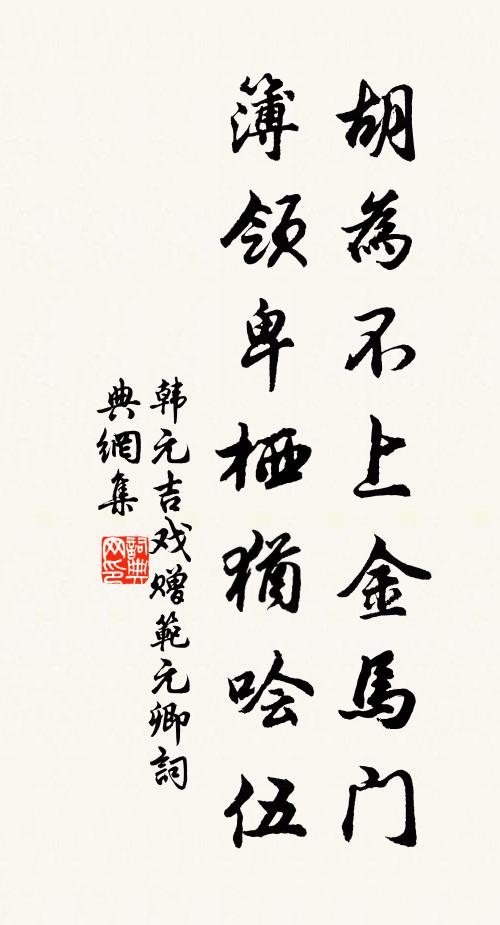 胡為不上金馬门
簿领卑栖猶哙伍
韩元吉戏赠範元卿詞
典網集
詞典網印